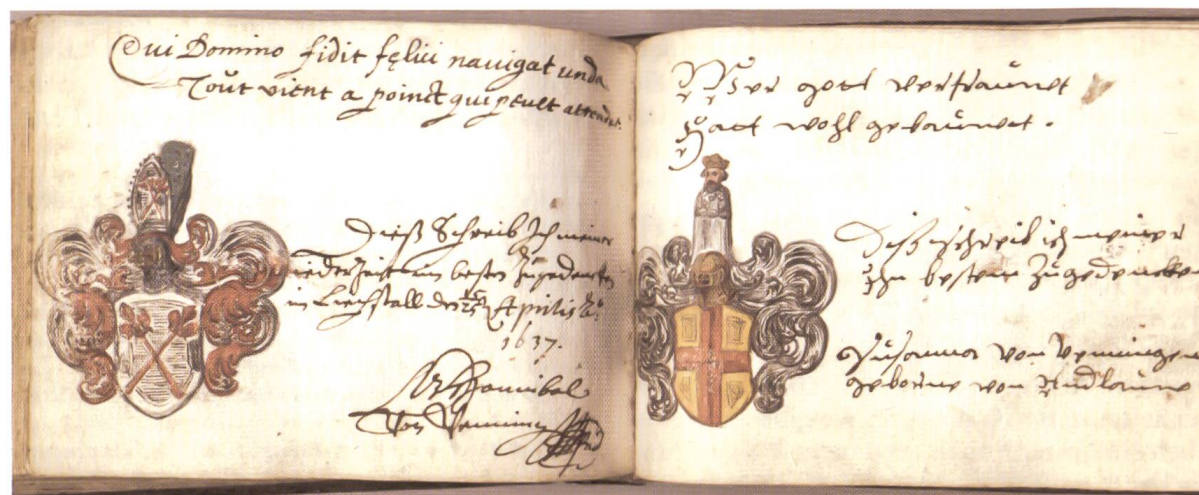 Qui Domino fidit fęlici navigat unda
Toút vient a poinct qui peult attendre.
Dieß Schreib Ich meiner
Zu
iederZeit im besten Zugedencken
in Liechstall den 15/25 Aprilis Aº.
1637.
Hannibal
Von Venningen
Wer gott vertrauwt
Hatt wohl gebauwet.
Diß schreib ich meiner
Zhn besten Zugedencken
Susanna von Venningen
geborne von